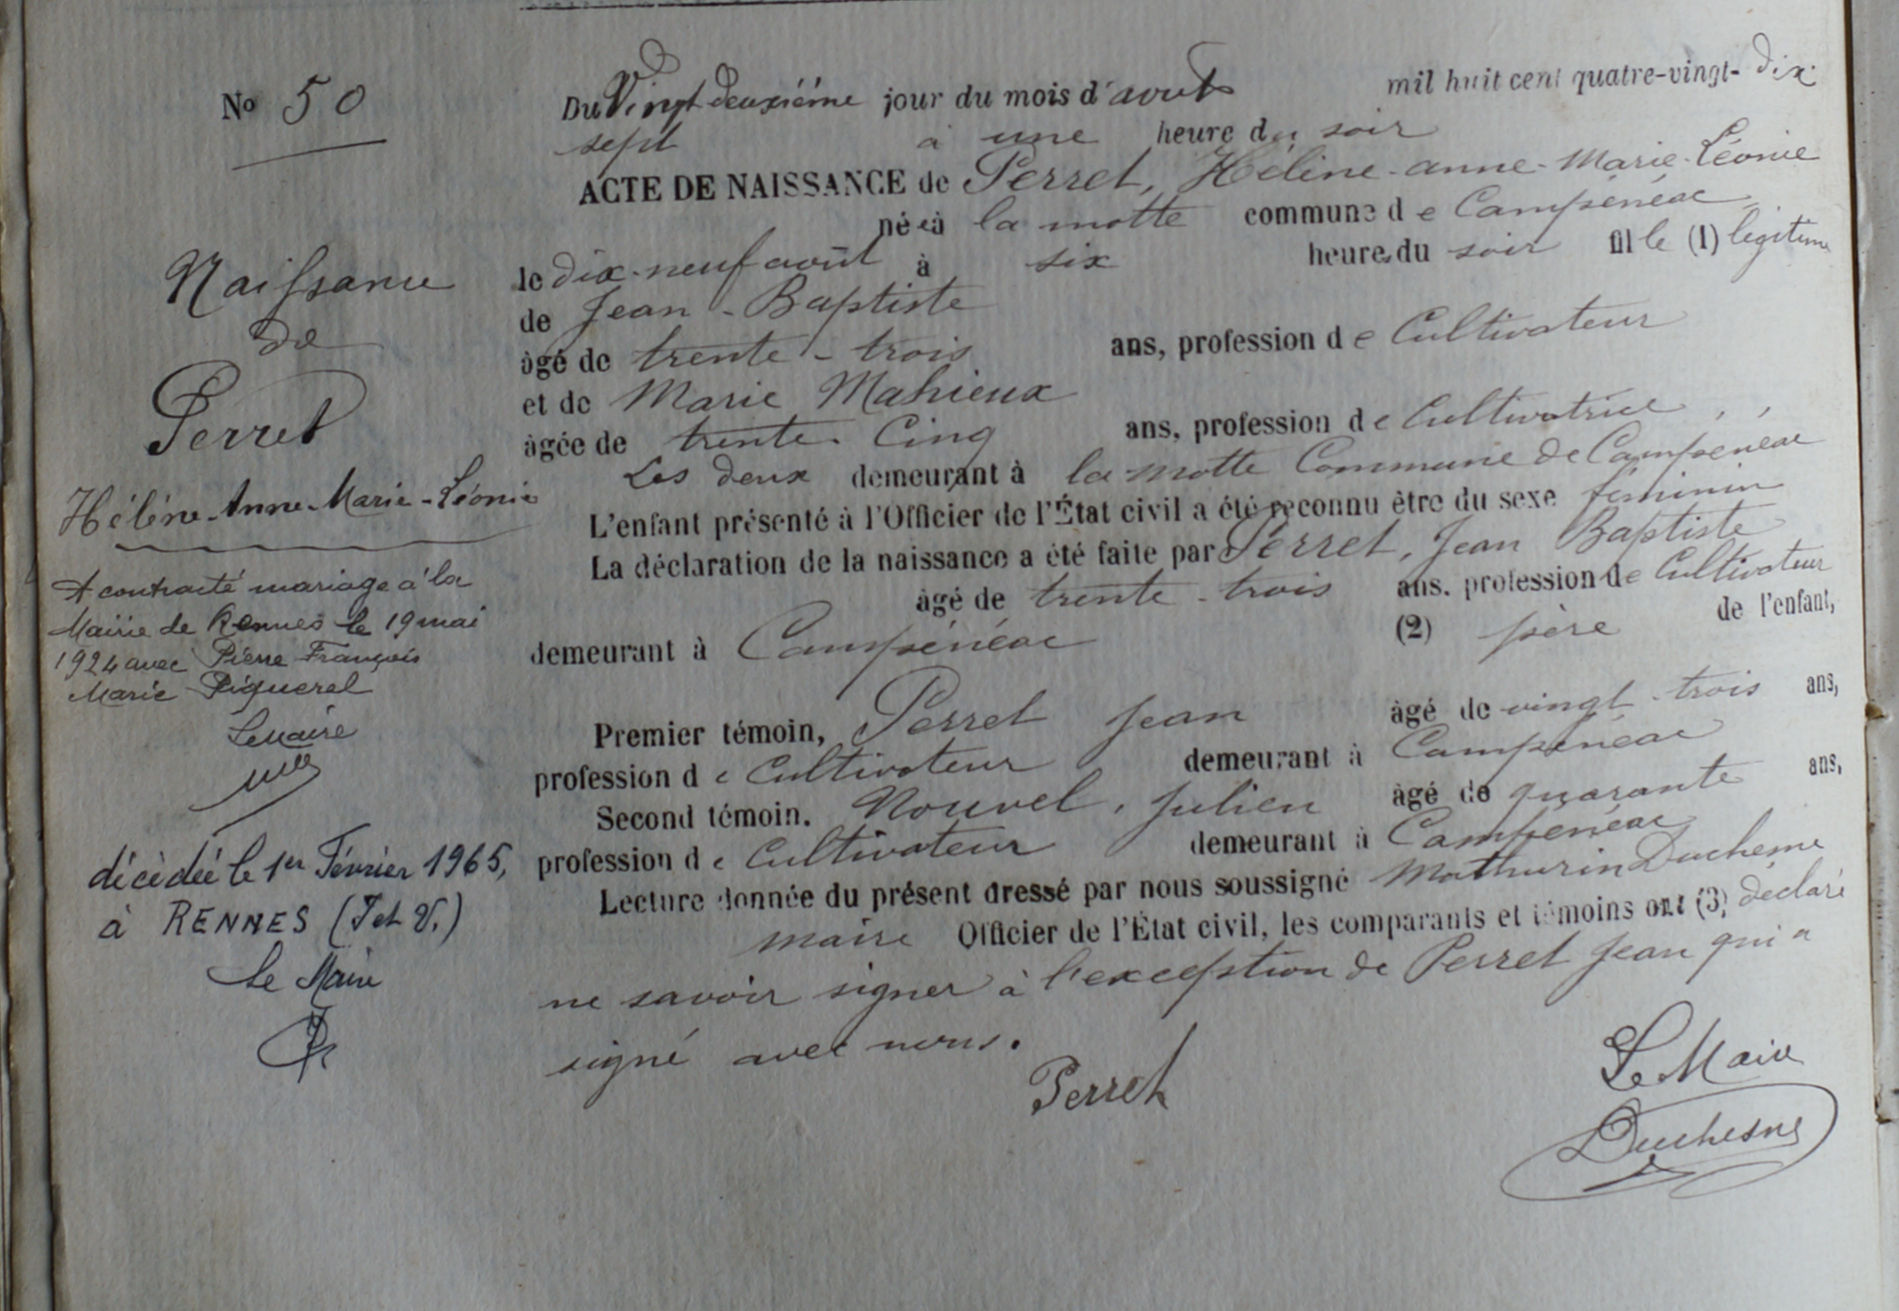 No 50
Naissance
de
Perret
Hélène-Anne-Marie-Léonie
A contracté mariage à la
Mairie de Rennes le 19 mai
1924 avec Pierre François
Marie Piguerel
Le Maire
décédée le 1er Février 1965,
à RENNES (I et V.)
Le Maire
Du Vingt deuxiéme jour du mois d'avout mil huit cent quatre-vingt-dix
sept à une heure du soir
ACTE DE NAISSANCE de Perret, Hélène-anne-Marie-Léonie
née à la motte commune de Campénéac
le dix-neuf août à six heures du soir fille (1) légitime
de Jean-Baptiste
âgé de trente-trois ans, profession de Cultivateur
et de Marie Mahieux
âgée de trente-Cinq ans, profession de Cultivatrice
Les deux demeurant à la motte Commune de Campénéac
L'enfant présenté à l'Officier de l'État civil a été reconnu être du sexe féminin
La déclaration de la naissance a été faite par Perret, Jean Baptiste
âgé de trente-trois ans, profession de Cultivateur
demeurant à Campénéac (2) père de l'enfant,
Premier témoin, Perret Jean âgé de vingt-trois ans,
profession de Cultivateur demeurant à Campénéac
Second témoin. Nouvel, Julien âgé de quarante ans,
profession de Cultivateur demeurant à Campénéac
Lecture donnée du présent dressé par nous soussigné Mathurin Duchesne
maire Officier de l'État civil, les comparants et témoins ont (3) déclaré
ne savoir signer à l'exception de Perret Jean qui a
signé avec nous.
Perret
Le Maire
Duchesne